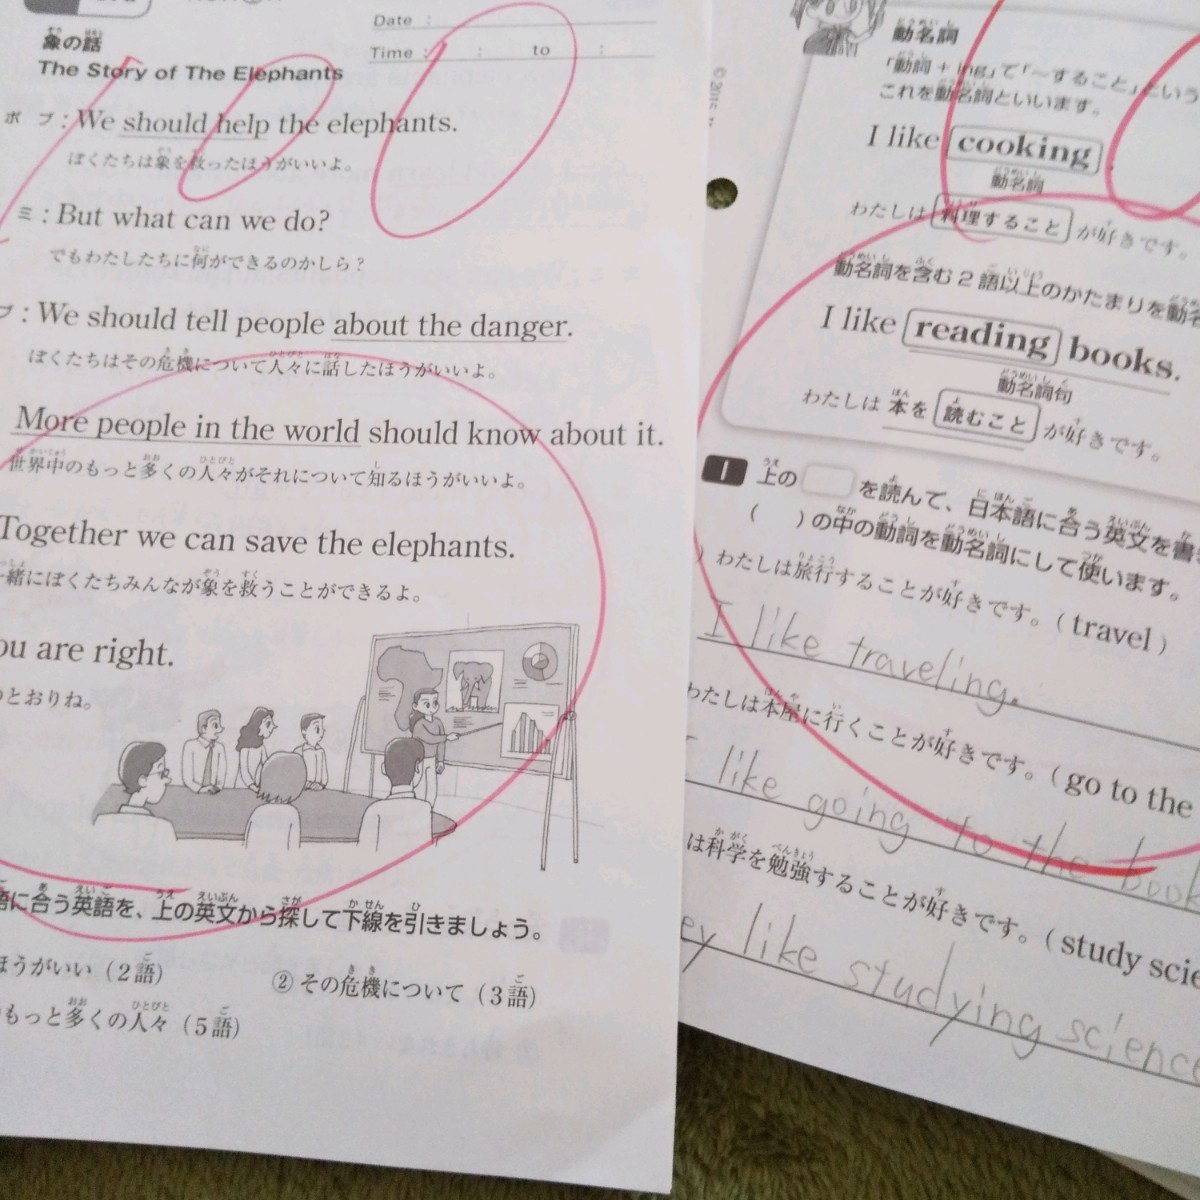 象の話
The Story of The Elephants
Date :
Time : : to :
100
ボブ : We should help the elephants.
ぼくたちは象を救ったほうがいいよ。
ミ : But what can we do?
でもわたしたちに何ができるのかしら？
ブ : We should tell people about the danger.
ぼくたちはその危機について人々に話したほうがいいよ。
More people in the world should know about it.
世界中のもっと多くの人々がそれについて知るほうがいいよ。
Together we can save the elephants.
緒にぼくたちみんなが象を救うことができるよ。
ou are right.
とおりね。
語に合う英語を、上の英文から探して下線を引きましょう。
ほうがいい（2語）
② その危機について（3語）
もっと多くの人々（5語）
動名詞
「動詞 + ing」で「〜すること」という
これを動名詞といいます。
I like cooking.
動名詞
わたしは 料理すること が好きです。
動名詞を含む2語以上のかたまりを動名
I like reading books.
動名詞句
わたしは 本を 読むこと が好きです。
1 上の を読んで、日本語に合う英文を書き
（ ）の中の動詞を動名詞にして使います。
）わたしは旅行することが好きです。（travel）
I like traveling.
わたしは本屋に行くことが好きです。（go to the
I like going to the book
は科学を勉強することが好きです。（study scie
ey like studying science